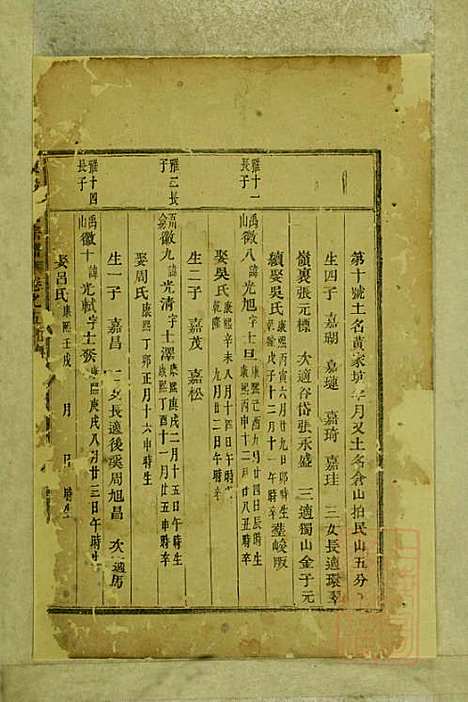 第十號土名黃家 年月又土名倉山拍民山五分
生四子 嘉瑚 嘉璉 嘉琦 嘉珪 三女長適環翠
嶺裏張元標 次適谷岱張永盛 三適獨山金子元
續娶吳氏康熙丙寅六月廿九日卯時生乾隆戊子十二月十一午時卒葬峻坂
雅十一長子
禹山徽八諱光旭字士旦康熙己酉九月廿四日辰時生康熙丙申十二月廿八丑時卒
娶吳氏康熙辛未八月十四日午時生乾隆 九月廿二日午時卒
生二子 嘉茂 嘉松
雅三長子
徽九諱光清字士澤康熙庚戌二月十五日午時生康熙丁酉十一月廿五申時卒
娶周氏康熙丁卯正月十六申時生
生一子 嘉昌 二女長適後溪周旭昌 次適馬
雅十四長子
禹山徽十諱光軾字士 康熙庚戌八月廿三日午時生
娶呂氏康熙壬戌 月 日 時生